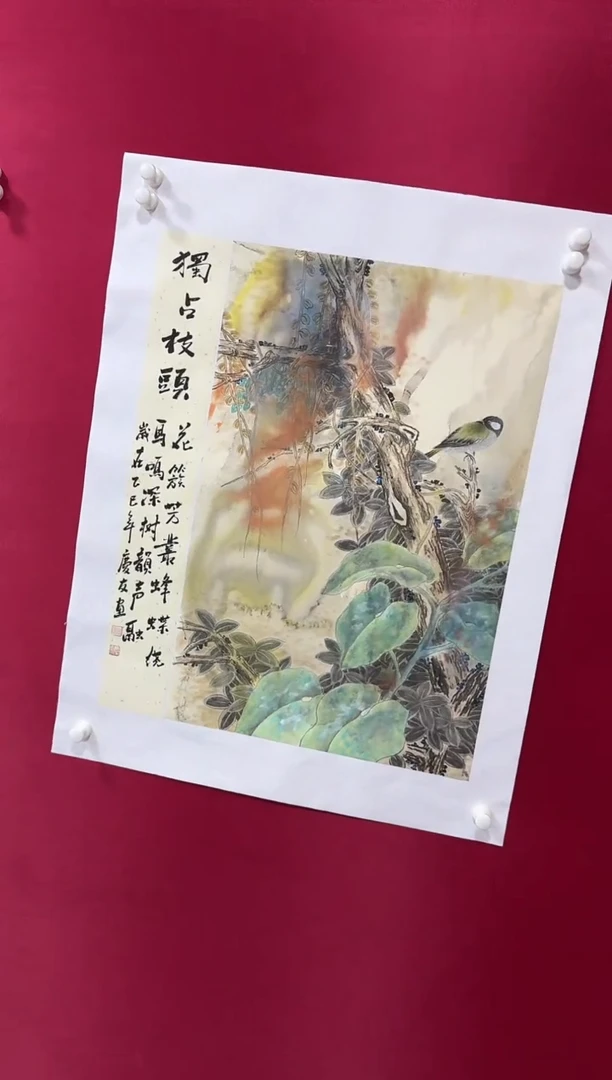 獨占枝頭
花簇芳叢蜂蝶绕
鳥鳴深树韻声融
歲在乙巳年慶友畫